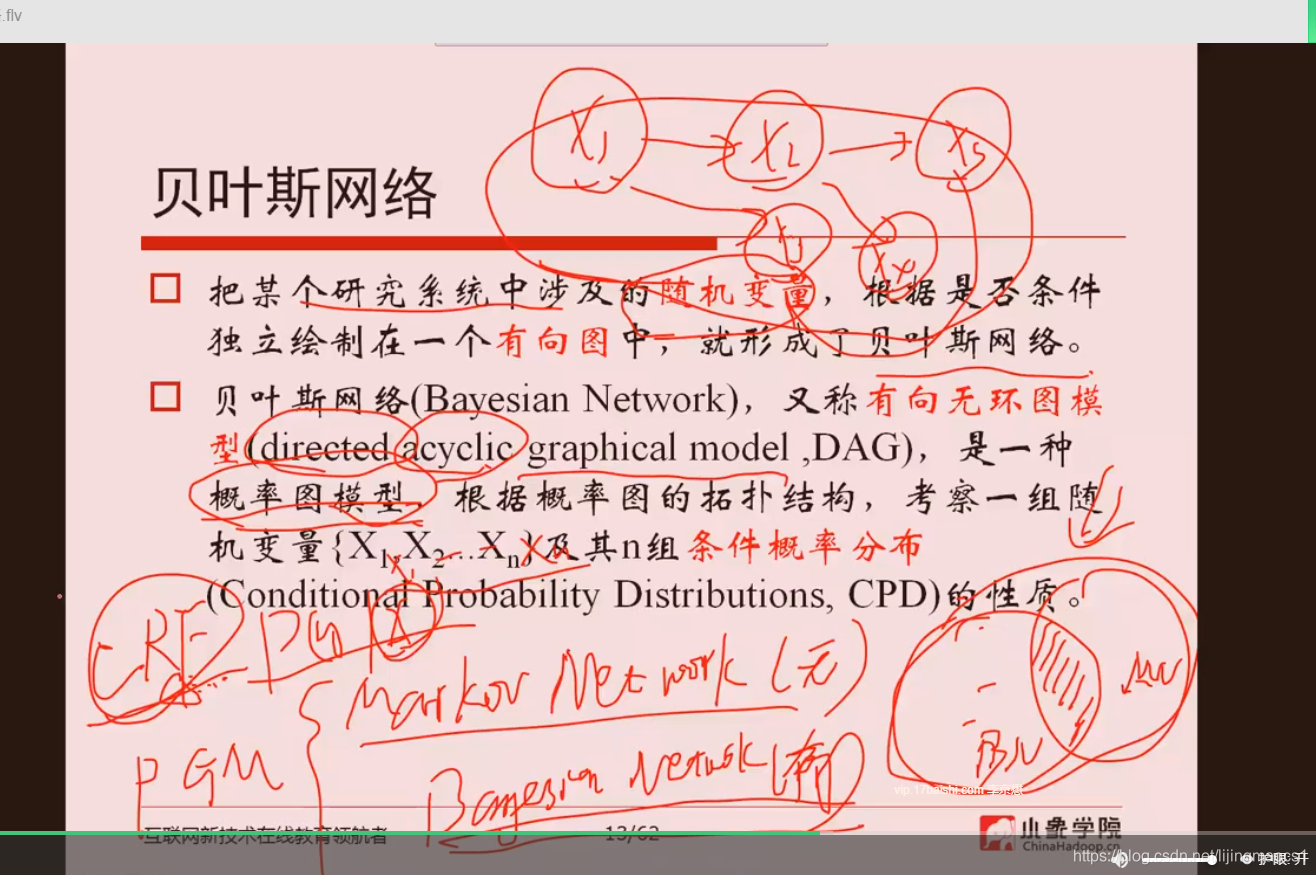 .flv
X1
X2
X5
X3
X4
贝叶斯网络
把某个研究系统中涉及的随机变量，根据是否条件
独立绘制在一个有向图中，就形成了贝叶斯网络。
贝叶斯网络(Bayesian Network)，又称有向无环图模
型(directed acyclic graphical model ,DAG)，是一种
概率图模型，根据概率图的拓扑结构，考察一组随
机变量{X1,X2...Xn}及其n组条件概率分布
(Conditional Probability Distributions, CPD)的性质。
CRF
Markov Network (无)
MN
BN
PGM
Bayesian Network (有)
互联网新技术在线教育领航者
13/62
小象学院
ChinaHadoop.cn
护眼 开